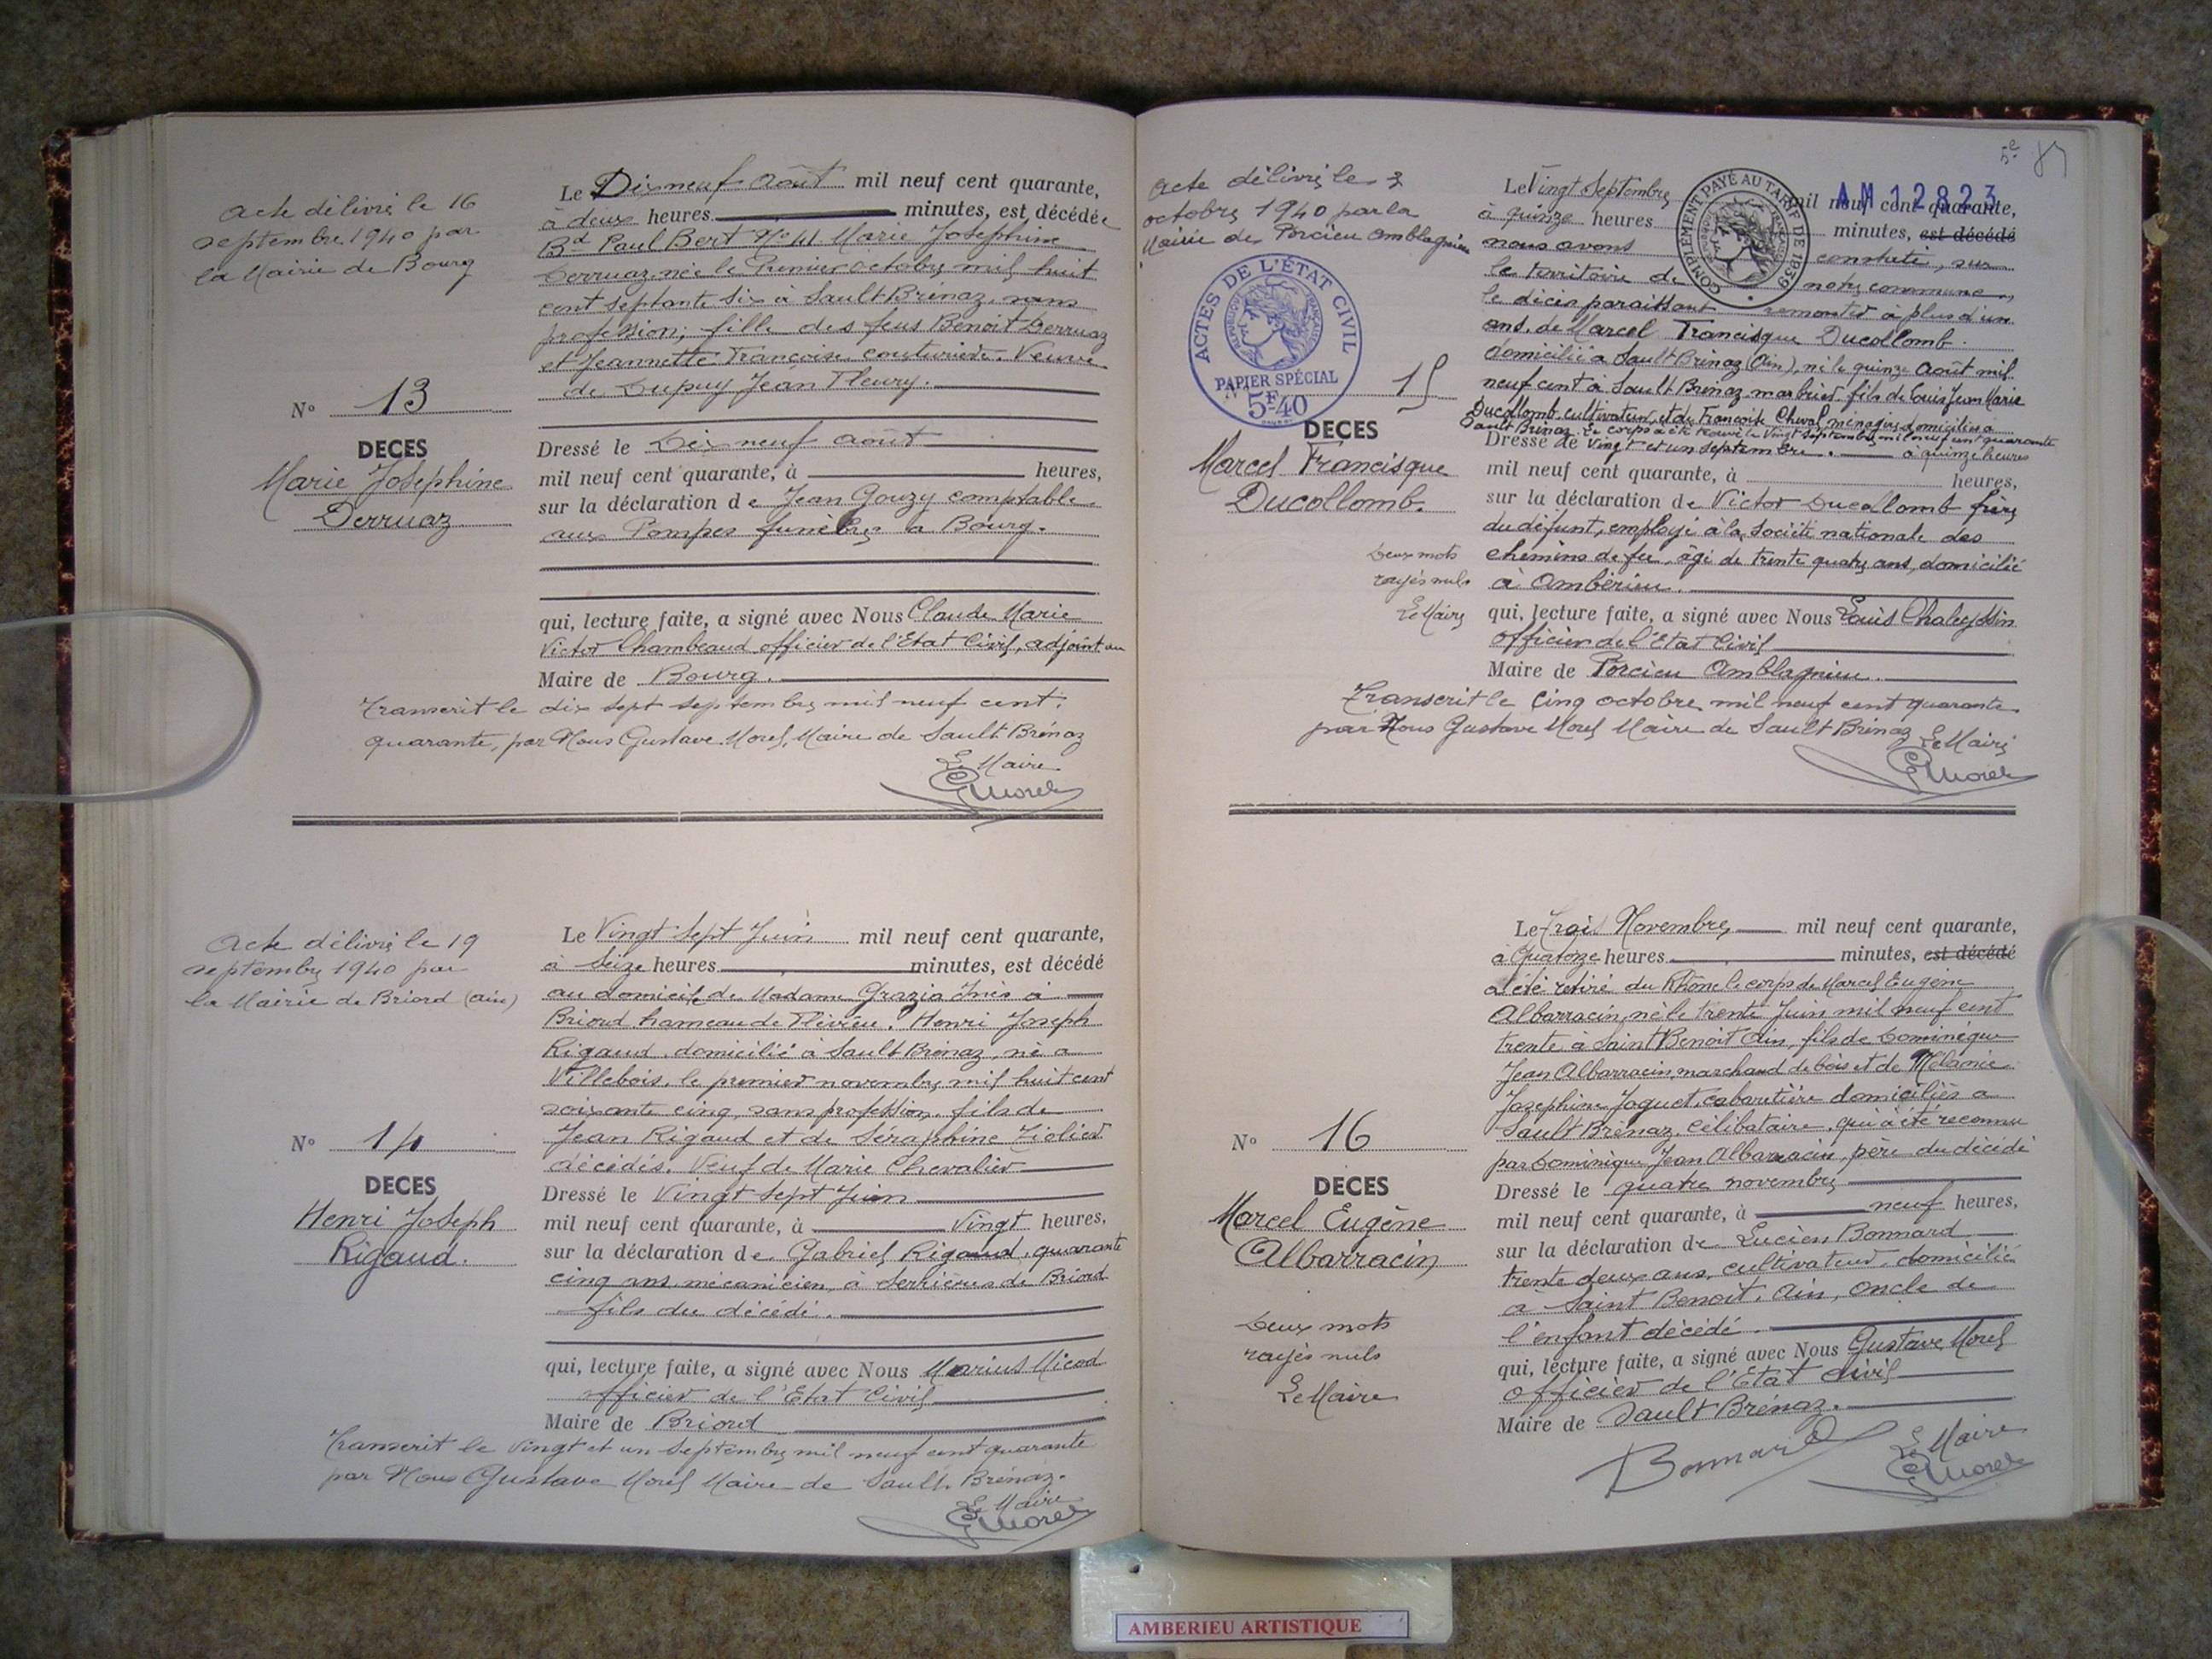 Acte délivré le 16
septembre 1940 par
la Mairie de Bourg
N° 13
DECES
Marie Josephine
Derruaz
Le Dix neuf Août mil neuf cent quarante,
à deux heures minutes, est décédée
Bd Paul Bert No 41 Marie Josephine
Derruaz, née le Premier octobre mil huit
cent septante six à Sault Brénaz, sans
profession; fille des feus Benoit Derruaz
et Jeannette Françoise couturière. Veuve
de Dupuy Jean Fleury.
Dressé le Dix neuf Août
mil neuf cent quarante, à heures,
sur la déclaration de Jean Gouzy comptable
aux Pompes funèbres à Bourg.
qui, lecture faite, a signé avec Nous Claude Marie
Victor Chambeaud officier de l'Etat Civil, adjoint au
Maire de Bourg.
Transcrit le dix sept septembre mil neuf cent
quarante, par Nous Gustave Morel, Maire de Sault Brénaz
Le Maire
GMorel
Acte délivré le 19
septembre 1940 par
la Mairie de Briord (Ain)
N° 14
DECES
Henri Joseph
Rigaud.
Le Vingt Sept Juin mil neuf cent quarante,
à Seize heures minutes, est décédé
au domicile de Madame Grazia Inès à
Briord hameau de Flévieu. Henri Joseph
Rigaud, domicilié à Sault Brénaz, né à
Villebois, le premier novembre mil huit cent
soixante cinq, sans profession, fils de
Jean Rigaud et de Séraphine
décédés. Veuf de Marie Chevalier
Dressé le Vingt Sept Juin
mil neuf cent quarante, à Vingt heures,
sur la déclaration de Gabriel Rigaud, quarante
cinq ans mécanicien, à Serrières de Briord
fils du décédé.
qui, lecture faite, a signé avec Nous Marius Micod
officier de l'Etat Civil
Maire de Briord
Transcrit le Vingt et un Septembre mil neuf cent quarante
par Nous Gustave Morel Maire de Sault Brénaz.
Le Maire
GMorel
5e 87
Acte délivré le 3
octobre 1940 par la
Mairie de Porcieu Amblagnieu
ACTES DE L'ÉTAT CIVIL
RÉPUBLIQUE FRANÇAISE
PAPIER SPÉCIAL
5F40
N° 15
DECES
Marcel Francisque
Ducollomb.
Deux mots
rayés nuls
Le Maire
COMPLÉMENT PAYÉ AU TARIF DE 1939
AM 12823
Le Vingt Septembre mil neuf cent quarante,
à quinze heures minutes, est décédé
nous avons constaté, sur
le territoire de notre commune,
le décès paraissant remonter à plus d'un
ans, de Marcel Francisque Ducollomb
domicilié à Sault Brénaz (Ain), né le quinze Août mil
neuf cent à Sault Brénaz, marbrier, fils de Louis Jean Marie
Ducollomb, cultivateur, et de Françoise Cheval, ménagère, domiciliés à
Sault Brénaz. Le corps a été trouvé le Vingt Septembre mil neuf cent quarante
Dressé le Vingt et un Septembre. à quinze heures
mil neuf cent quarante, à heures,
sur la déclaration de Victor Ducollomb frère
du défunt, employé à la Société nationale des
chemins de fer, âgé de trente quatre ans, domicilié
à Ambérieu.
qui, lecture faite, a signé avec Nous Louis Chaleyssin
officier de l'Etat Civil
Maire de Porcieu Amblagnieu.
Transcrit le Cinq octobre mil neuf cent quarante
par Nous Gustave Morel Maire de Sault Brénaz
Le Maire
GMorel
N° 16
DECES
Marcel Eugène
Albarracin
Deux mots
rayés nuls
Le Maire
Le Trois Novembre mil neuf cent quarante,
à Quatorze heures minutes, est décédé
a été retiré du Rhône le corps de Marcel Eugène
Albarracin, né le trente Juin mil neuf cent
trente à Saint Benoit Ain, fils de Dominique
Jean Albarracin, marchand de bois et de Mélanie
Josephine Joguet, cabaretière domiciliés à
Sault Brénaz, célibataire, qui a été reconnu
par Dominique Jean Albarracin, père du décédé
Dressé le quatre novembre
mil neuf cent quarante, à neuf heures,
sur la déclaration de Lucien Bonnard
trente deux ans, cultivateur, domicilié
à Saint Benoit, Ain, oncle de
l'enfant décédé.
qui, lecture faite, a signé avec Nous Gustave Morel
officier de l'Etat civil
Maire de Sault Brénaz.
Bonnard
Le Maire
GMorel
AMBERIEU ARTISTIQUE